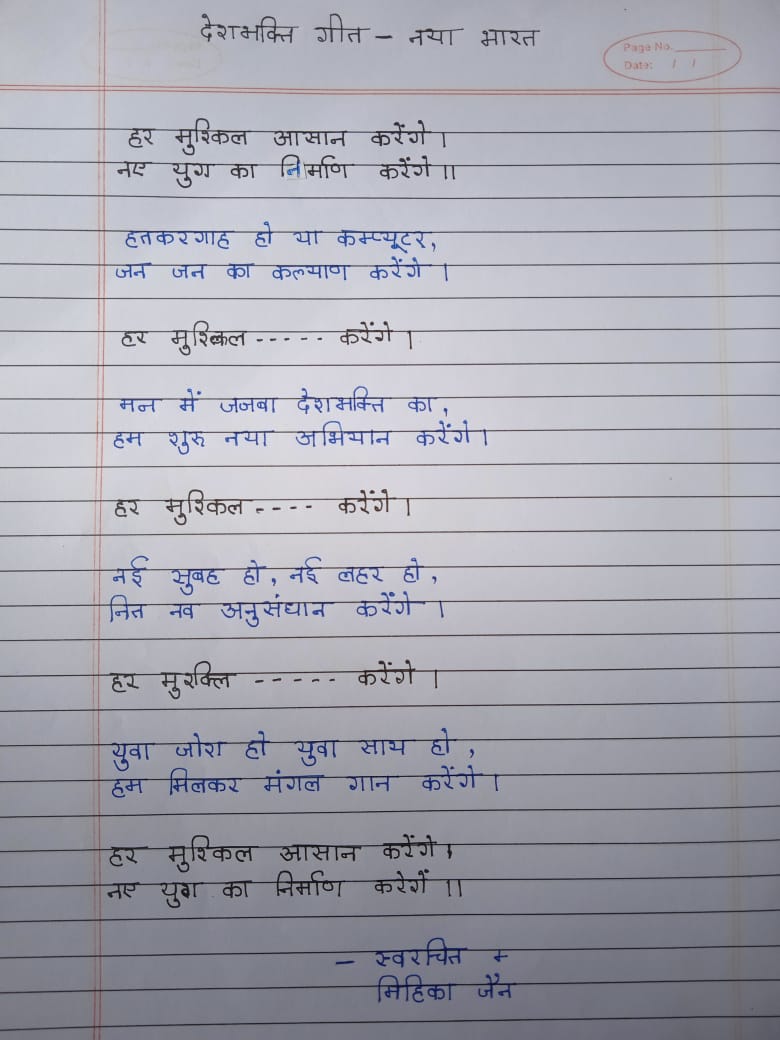 देशभक्ति गीत - नया भारत
Page No.
Date: / /
हर मुश्किल आसान करेंगे।
नए युग का निर्माण करेंगे।।
हतकरगाह हो या कम्प्यूटर,
जन जन का कल्याण करेंगे।
हर मुश्किल ----- करेंगे।
मन में जजबा देशभक्ति का,
हम शुरु नया अभियान करेंगे।
हर मुश्किल ---- करेंगे।
नई सुबह हो, नई लहर हो,
नित नव अनुसंधान करेंगे।
हर मुश्क्लि ----- करेंगे।
युवा जोश हो युवा साथ हो,
हम मिलकर मंगल गान करेंगे।
हर मुश्किल आसान करेंगे।
नए युग का निर्माण करेगें।।
- स्वरचित
मिहिका जैन